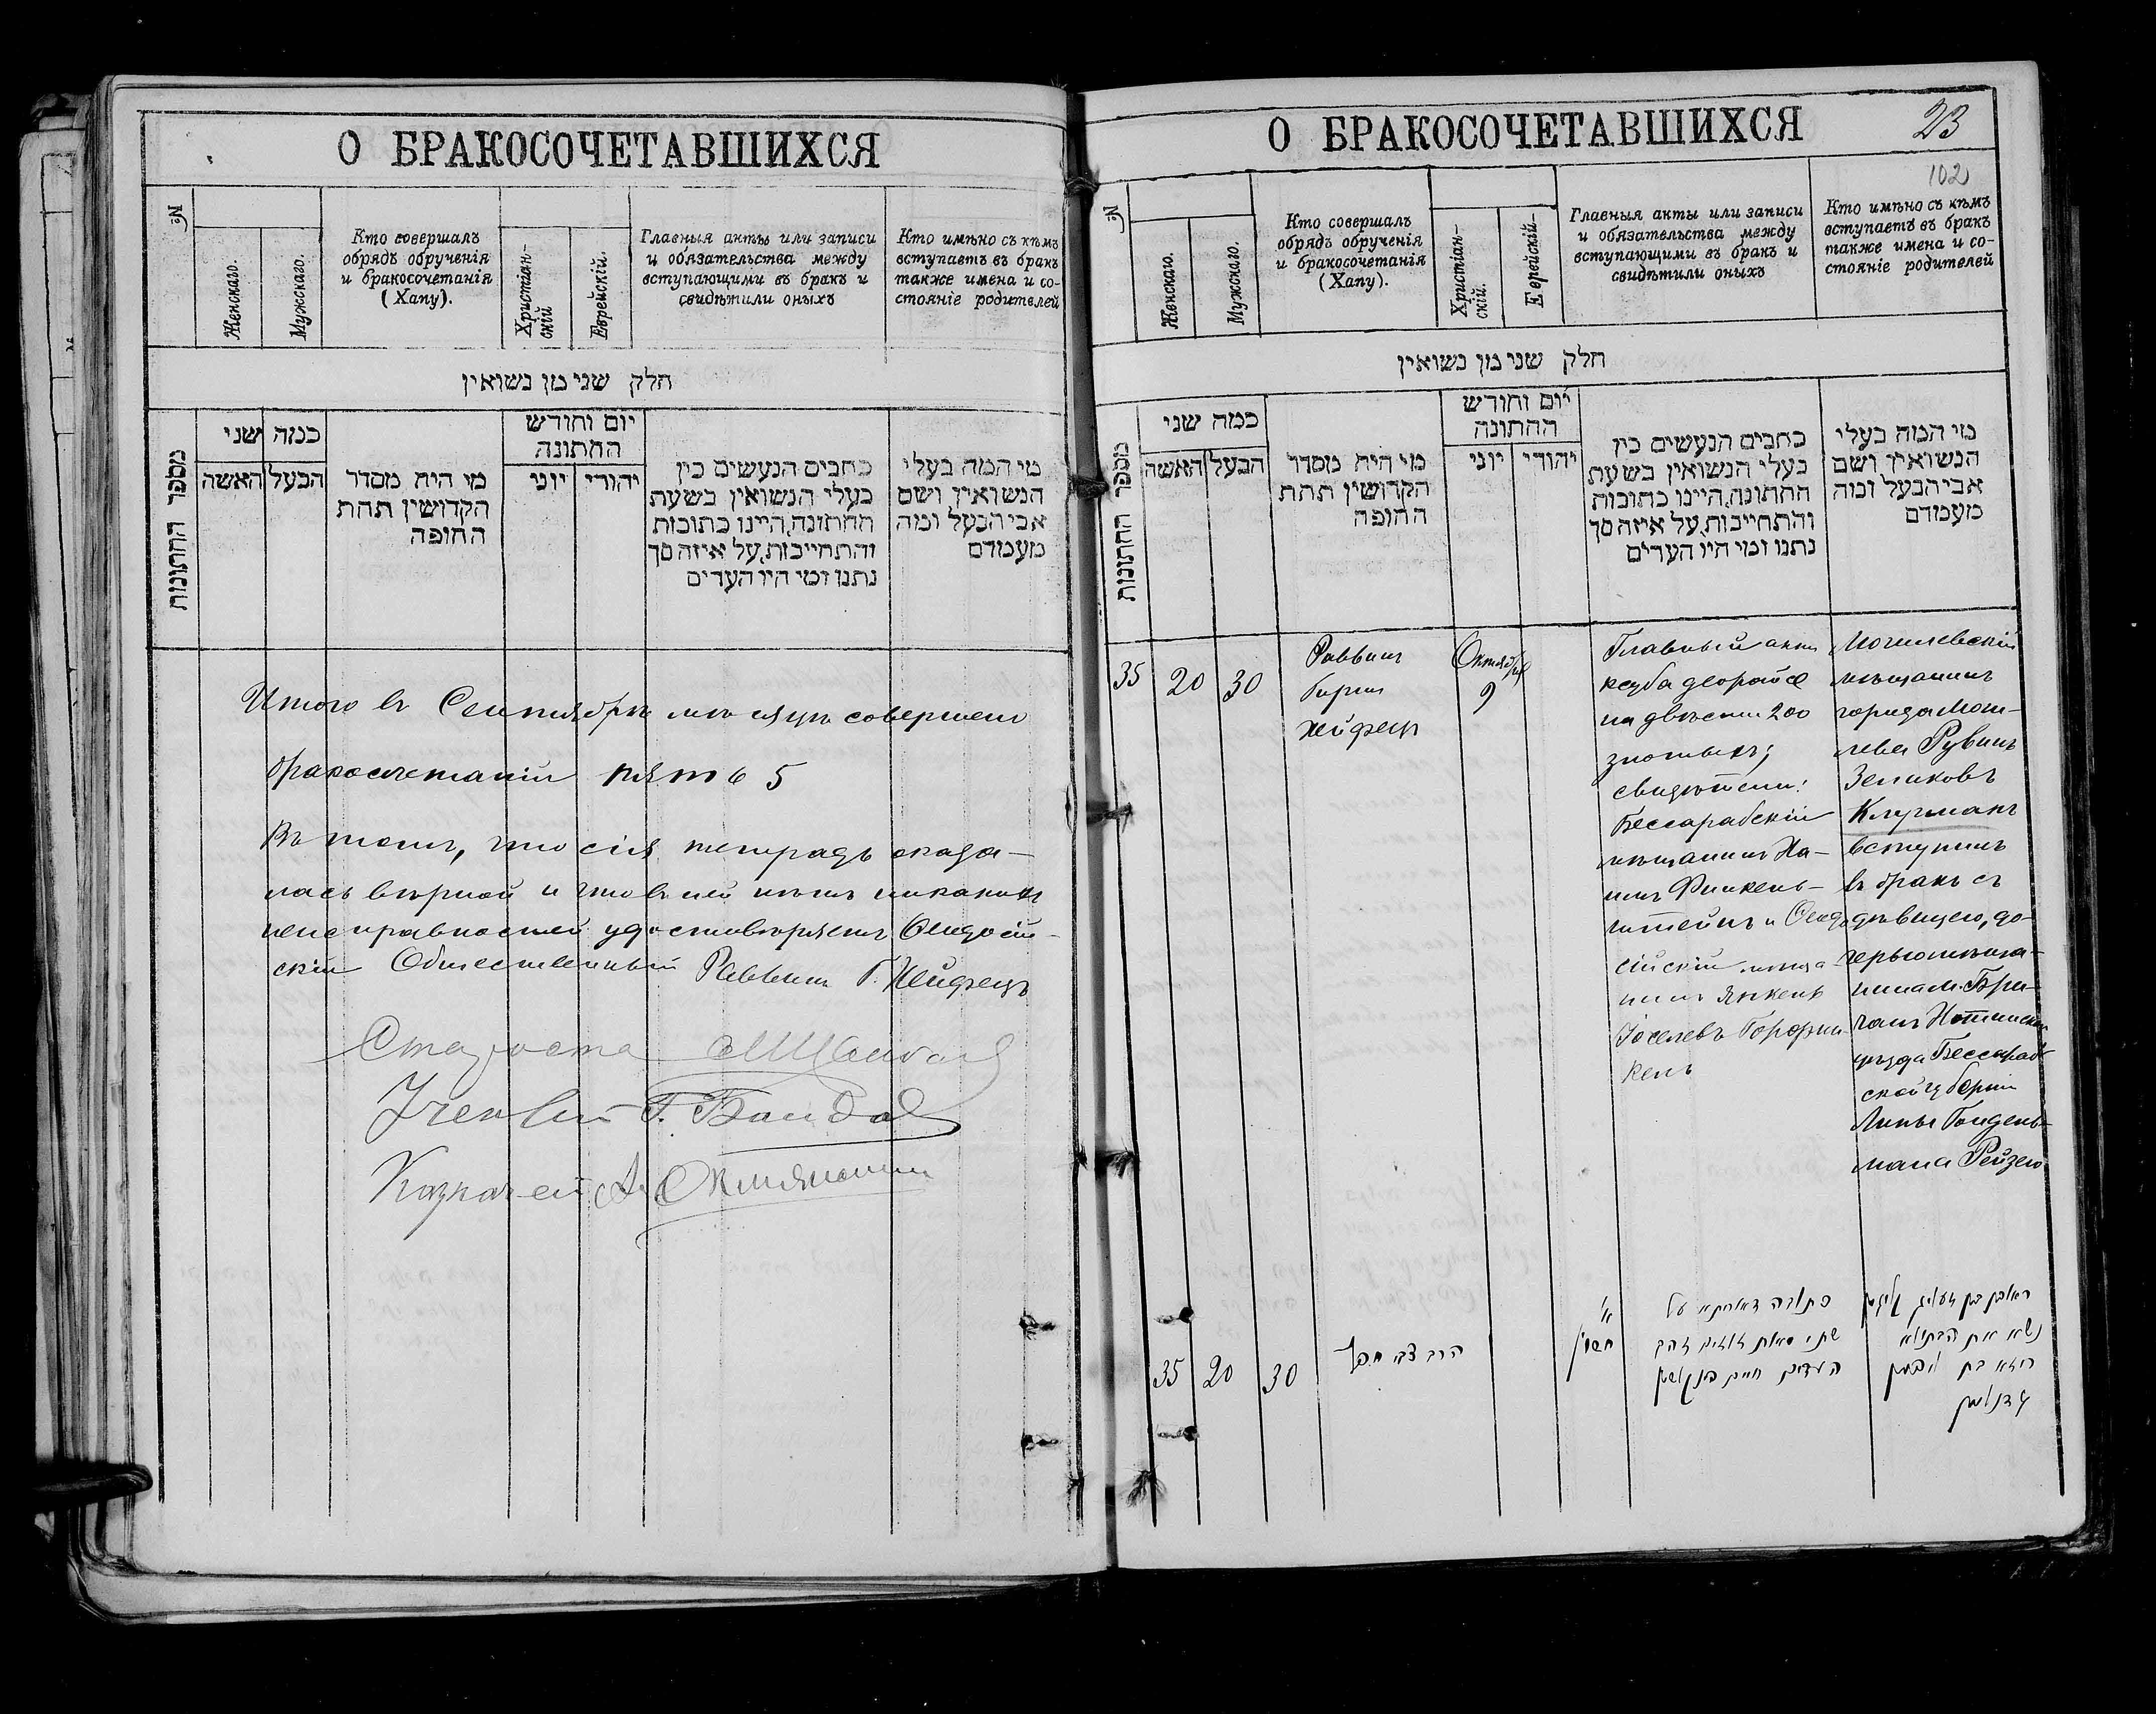 О БРАКОСОЧЕТАВШИХСЯ
№
Женскаго.
Мужскаго.
Кто совершалъ
обрядъ обрученія
и бракосочетанія
(Хапу).
Христіан-
скій
Еврейскій.
Главныя акты или записи
и обязательства между
вступающими въ бракъ и
свидѣтили оныхъ
Кто имѣно съ кѣмъ
вступаетъ въ бракъ
также имена и со-
стояніе родителей
חלק שני מן נשואין
מספר החתונות
כמה שני
האשה
הבעל
מי הית מסדר
הקדושין תחת
החופה
יום וחודש
החתונה
יוני
יהודי
כתבים הנעשים בין
בעלי הנשואין בשעת
החתונה, היינו כתובות
והתחייבות, על איזה סך
נתנו ומי היו העדים
מי המה בעלי
הנשואין ושם
אבי הבעל ומה
מעמדם
Итого въ Сентябрѣ мѣсяцѣ совершено
бракосочетаній пять 5
Въ томъ, что сія тетрадь оказа-
лась вѣрной и что въ ней нѣтъ никакихъ
неисправностей удостовѣряетъ Ѳеодосій-
скій Общественный Раввинъ Г. Хейфецъ
Староста
Ученый Г.
Казначей А.
О БРАКОСОЧЕТАВШИХСЯ
23
102
№
Женскаго.
Мужскаго.
Кто совершалъ
обрядъ обрученія
и бракосочетанія
(Хапу).
Христіан-
скій.
Еврейскій-
Главныя акты или записи
и обязательства между
вступающими въ бракъ и
свидѣтили оныхъ
Кто имѣно съ кѣмъ
вступаетъ въ бракъ
также имена и со-
стояніе родителей
חלק שני מן נשואין
מספר החתונות
כמה שני
האשה
הבעל
מי הית מסדר
הקדושין תחת
החופה
יום וחודש
החתונה
יוני
יהודי
כתבים הנעשים בין
בעלי הנשואין בשעת
החתונה, היינו כתובות
והתחייבות, על איזה סך
נתנו ומי היו העדים
מי המה בעלי
הנשואין ושם
אבי הבעל ומה
מעמדם
35
20
30
Раввинъ
Гирш
Хейфецъ
Октября
9
Главный актъ
ксуба деорайсе
на двѣсти 200
злотыхъ;
свидѣтели:
Бессарабскій
мѣщанинъ Ха-
имъ Финкель-
штейнъ и Ѳеодо
сійскій мѣща-
нинъ Янкель
Іоселевъ Горфин-
кель
Могилевскій
мѣщанинъ
города Моги-
лева Рувинъ
Зеликовъ
Клугманъ
вступилъ
въ бракъ съ
дѣвицею, до-
черью мѣща-
нина м. Бри-
чанъ Хотинскаго
уѣзда Бессараб-
ской губерніи
Липы Гольдень-
мана Рейзею
35
20
30
הרב צבי חפץ
א'
חשון
כתובה דאוריתא על
שתי מאות זוזים זהב
העדים חיים פינקלשטין
ראובן בן זעליג קלוגמן
נשא את הבתולא
רייזא בת ליפמן
גדנלמן